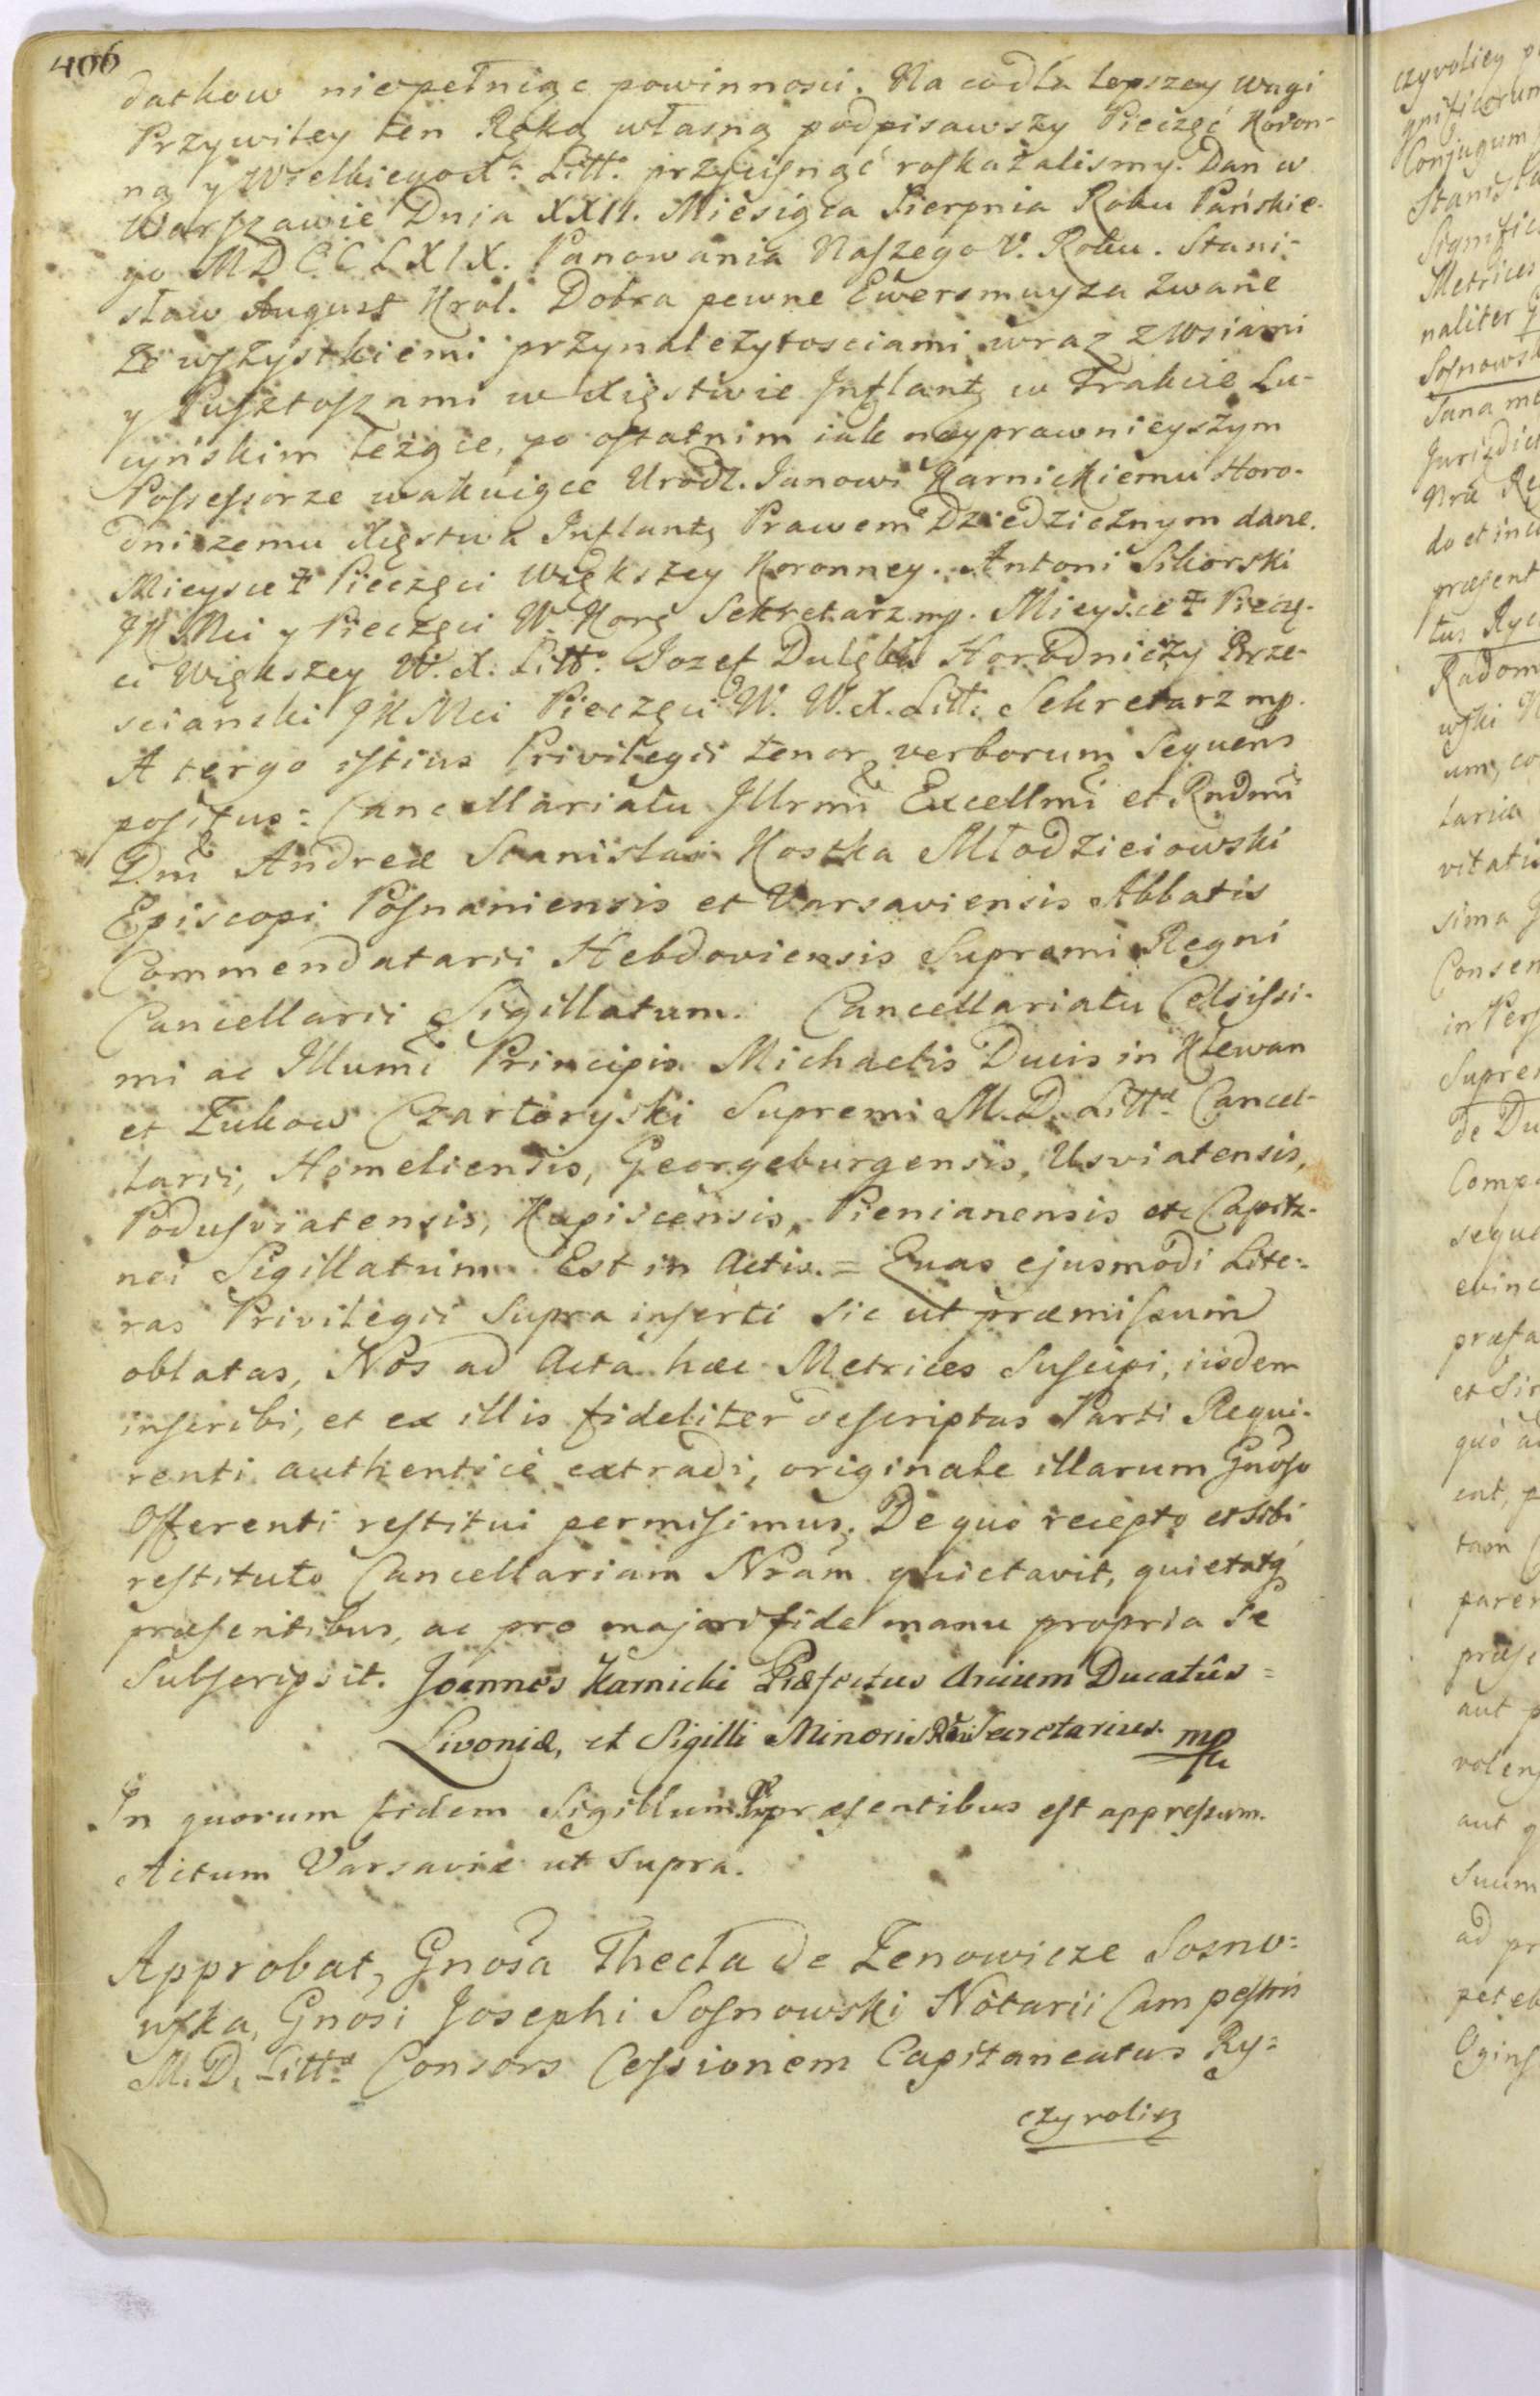 406
datkow niepełniąc powinnosci. Na co dla lepszey wagi
Przywiley ten Ręką własną podpisawszy Pieczęć Koron-
ną y Wielkiego X. Litt. przycisnąć roskazalismy. Dan w
Warszawie Dnia XXII. Miesiąca Sierpnia Roku Pańskie-
go MDCCLXIX. Panowania Naszego V. Roku. Stani-
sław August Krol. Dobra pewne Ewersmuyza zwane
ze wszystkiemi przynależytosciami wraz z Wsiami
y Pusztoszami w Xięstwie Inflantę w Trakcie Lu-
cyńskim leżące, po ostatnim iak nayprawnieyszym
Possessorze wakuiące Urodz. Janowi Karnickiemu Horo-
dniczemu Xięstwa Inflantę Prawem Dziedzicznym dane.
Mieysce Pieczęci Większey Koronney. Antoni Sikorski
JKMci y Pieczęci W. Korę Sekretarz mp. Mieysce Pieczę-
ci Większey W. X. Litt. Jozef Dulęba Horodniczy Brze-
scianski JKMci Pieczęci W. W. X. Litt. Sekretarz mp.
A tergo istius Privilegii tenor verborum sequens
positus: Cancellariatu Illrmi Excellmi et Rndmi
Dni Andreæ Stanislai Kostka Młodzieiowski
Episcopi Posnaniensis et Varsaviensis Abbatis
Commendatarii Hebdoviensis Supremi Regni
Cancellarii Sigillatum. Cancellariatu Celsissi-
mi ac Illumi Principis Michaelis Ducis in Klewan
et Zukow Czartoryski Supremi M. D. Litt. Cancel-
larii, Homeliensis, Georgeburgensis, Usviatensis,
Podusviatensis, Kupiscensis, Pienianensis etc Capita-
nei Sigillatum. Est in Actis. = Quas ejusmodi Lite-
ras Privilegii supra inserti sic ut præmissum
oblatas, Nos ad Acta hæc Metrices suscipi, iisdem
inscribi, et ex illis fideliter descriptas Parti Requi-
renti authentice extradi, originale illarum Gnoso
Offerenti restitui permisimus. De quo recepto et sibi
restituto Cancellariam Nram quietavit, quietatq
præsentibus, ac pro majori fide manu propria se
subscripsit. Joannes Karnicki Præfectus Arcium Ducatûs =
Livoniæ, et Sigilli Minoris Rni Secretarius. mp
In quorum fidem Sigillum præsentibus est appressum.
Actum Varsaviæ ut supra.
Approbat, Gnosa Thecla de Zenowicze Sosno-
wska, Gnosi Josephi Sosnowski Notarii Campestris
M. D. Litt. Consors Cessionem Capitaneatus Ry-
czyvoliey p
gnificorum
Conjugum
Stanisła
Signific
Metrices
naliter
Sosnowsk
Jurisdict
do et in
præsent
Radom
um, co
vitatis
sima
Consen
in Pers
Supre
de Du
Comp
seque
evinc
præfa
et
quo ad
ent, p
tam
paren
præs
aut p
volen
aut q
suum
ad pr
peteb
Ogins